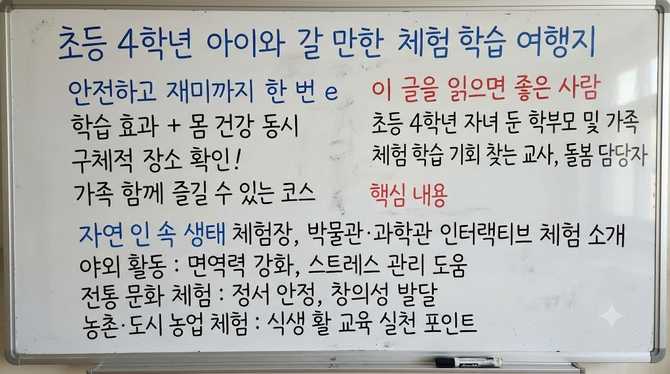 초등 4학년 아이와 갈 만한 체험 학습 여행지
안전하고 재미까지 한 번 e
학습 효과 + 몸 건강 동시
구체적 장소 확인!
가족 함께 즐길 수 있는 코스
이 글을 읽으면 좋은 사람
초등 4학년 자녀 둔 학부모 및 가족
체험 학습 기회 찾는 교사, 돌봄 담당자
핵심 내용
자연 인 속 생태 체험장, 박물관·과학관 인터랙티브 체험 소개
야외 활동 : 면역력 강화, 스트레스 관리 도움
전통 문화 체험 : 정서 안정, 창의성 발달
농촌·도시 농업 체험 : 식생 활 교육 실천 포인트